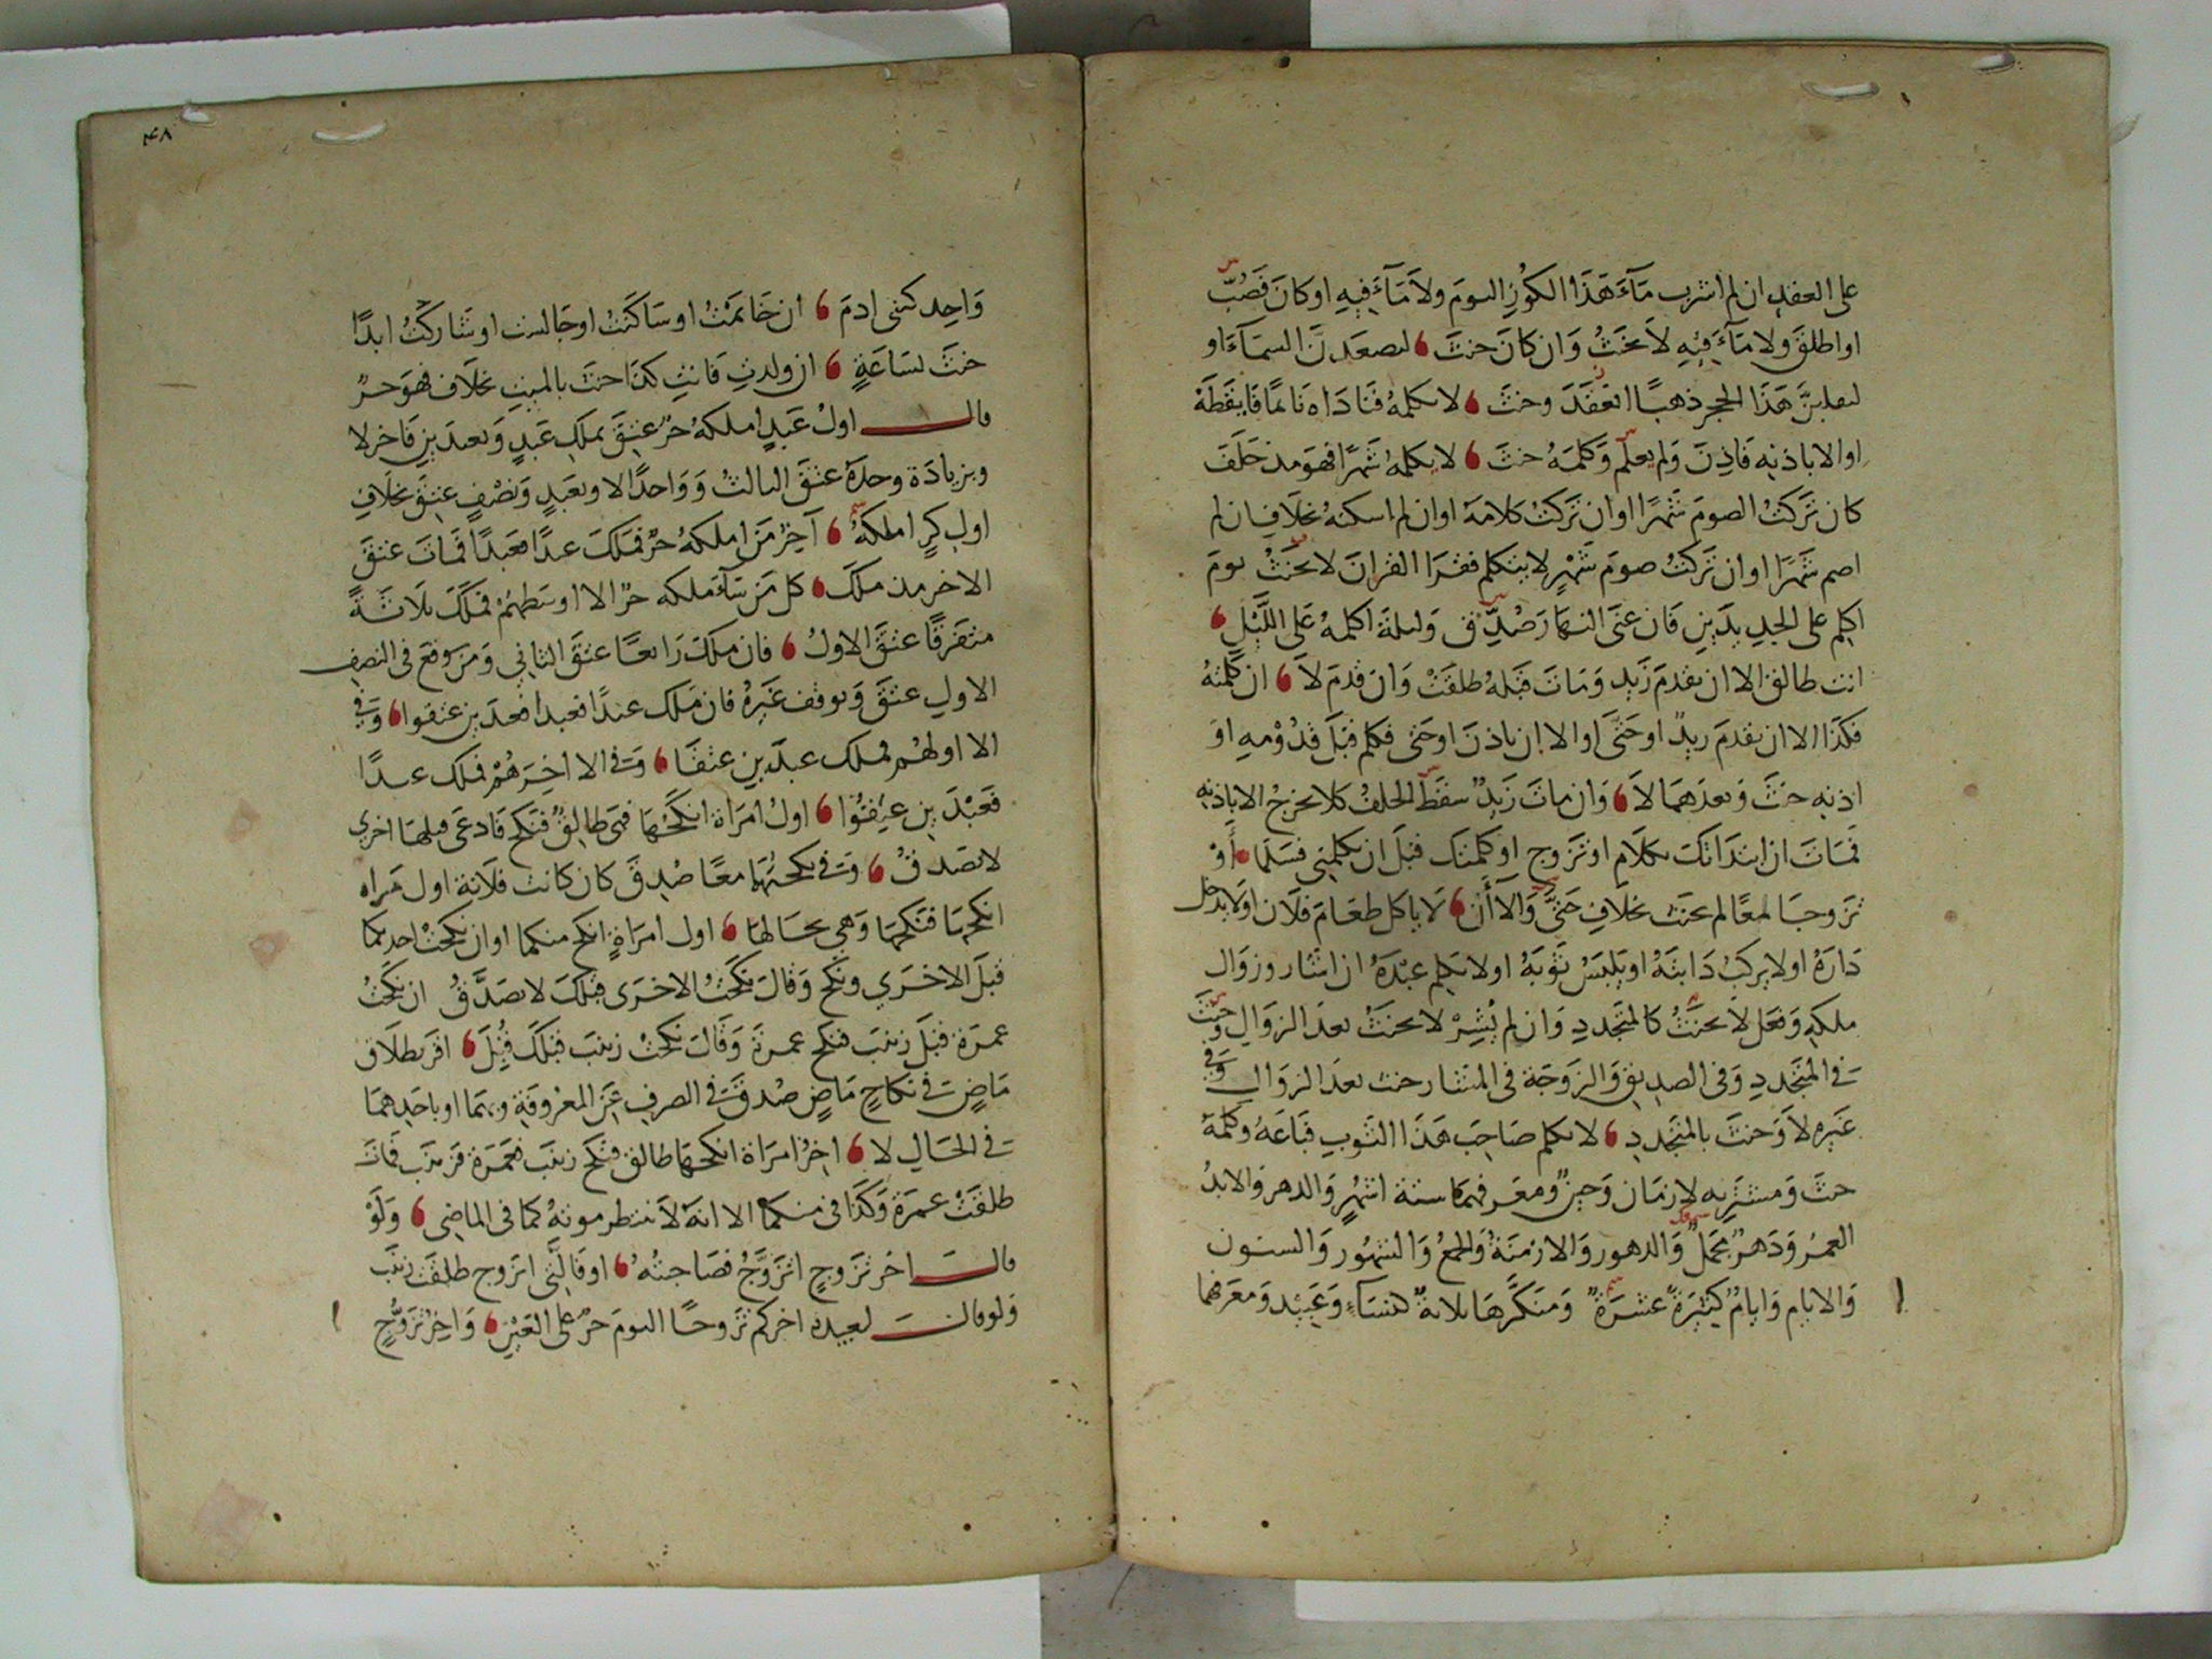 على العقد ان لم اشرب مَآءَ هَذَا الكُوْزِ اليومَ ولاَ مَآءَ فيهِ او كانَ فَصُبَّ
او اطلقَ ولا مَآءَ فِيْهِ لاَ يحنَثُ وَان كانَ حنثَ لصعدَنَّ السمَآءَ او
لىعلىنَّ هَذَا الحجر ذهبًا انعقَدَ وحنثَ لا يكلمهُ فنَادَاهُ نَائمًا فَايقَظَهُ
او الا باذنِهِ فَاذِنَ وَلم يعلَم وَكلمَهُ حنثَ لا يكلمهُ شَهرًا فهوَ مذ حَلَفَ
كان تَركتُ الصومَ شَهرًا او ان تَركتُ كلامَهُ او ان لم اسكنهُ بخلاَفِ ان لم
اصم شَهرًا او ان تركتُ صومَ شَهْرٍ لا يتكلم فقرَا القرانَ لا يحنَثْ يومَ
اكلم على الجديدَينِ فَان عنَى النهَارَ صُدِّقَ وَليلةَ اكلمهُ عَلَى اللَّيْلِ
انت طالق الا ان يقدمَ زَيد وَمَاتَ قَبلَهُ طلقَتْ وَان قدمَ لاَ ان كلمتهُ
فكذَا الا ان يقدمَ زيدٌ او حَتَّى او الا ان ياذنَ او حَتى فكلم قبَلَ قدُوْمهِ اوْ
اذنهِ حنثَ وَبعدَهمَا لاَ وَان ماتَ زَيدٌ سقَطَ الحلفُ كلا يخرجُ الا باذنهِ
فمَاتَ ان ابتدَاتكَ بكلاَمٍ او تزوجٍ او كلمتك قبلَ ان تكلمني فسَلمَا أَوْ
تزوجَا معًا لم يحنَث بخلاَفِ حَتَّى وَالاَ أَن لاَ ياكل طعَامَ فلاَن اوَ لاَ يدخل
دَارَهُ او لا يركبُ دَابتَهُ او يَلبَسُ ثوبَهُ او لا يكلم عَبْدَهُ ان اشَار وزوَال
ملكهِ وَفعَل لاَ يحنَثُ كالمتجَددِ وَان لم يُشِرْ لا يحنَثُ بعدَ الزوَالِ وحنثَ
فى المتجَددِ وَفى الصديقِ وَالزوَجَة فى المشَار حنث بعدَ الزوَالِ وَفى
غَيرِهِ لاَ وَحنثَ بالمتجَددِ لا يكلم صَاحِبَ هَذَا الثوبِ فبَاعَهُ وكلمَهُ
حنثَ وَمشترِيهِ لا زمَان وَحينٌ ومعَرفهمَا ستة اشهُرٍ وَالدهر وَالابدُ
العمرُ وَدَهرٌ مجمَلٌ وَالدهور وَالازمنَةُ وَالجمعُ وَالشهُور وَالسنون
وَالايام وَايامٌ كثيرَةٌ عشرَةٌ وَمنكَّرهَا ثلاثةٌ كنسَآءٍ وَعَبيْد وَمعَرفهمَا
٤٨
وَاحِد كبنى ادمَ ان خَاتَمتُ او سَاكَنتُ او جَالست او شَاركتُ ابدًا
حنثَ لسَاعَةٍ ان ولدتِ فَانتِ كذَا حنثَ بالميتِ بخلَاف فهوَ حرٌ
قال اولُ عَبدٍ املكهُ حرٌ عتِقَ بملكِ عَبدٍ وَبعبدَينِ فَاخر لا
وبزيادَة وحدهُ عتقَ الثالثُ وَوَاحدًا لا وبعَبدٍ وَنصْفٍ عتِقَ بخلَافِ
اولِ كرٍ املكهُ آخِرُ مَن املكهُ حرٌ فمَلكَ عبدًا فعَبدًا فمَاتَ عتقَ
الاخر مذ ملكَ كل مَن سَاَملكه حرٌ الا اوسَطهمْ فمَلكَ ثلاَثَةً
متفَرقًا عتقَ الاولُ فان ملكَ رَابعًا عتقَ الثاني وَمَن وقعَ فى النصفِ
الاولِ عتقَ وَتوقف غَيرُهُ فان مَلك عبدًا فعَبدا فعبدَين عتقوا وَفى
الا اولهُم فملك عبدَين عتقَا وَفى الا اخِرَهُمْ فملك عبدًا
فعَبْدَينِ عتِقُوا اولُ امرَاة انكحُهَا فهى طالِقٌ فنكحَ فَادعَى قبلهَا اخرى
لا يصَدقُ وَفى نكحتهُمَا معًا صُدِقَ كان كانت فلاَنة اول مَراه
انكحهَا فنكَحهَا وَهي بحَالهَا اول امرَاةٍ انكح منكما او ان نكحتُ احدىكما
قبلَ الاخرَي ونكحَ وَقالَ نكَحتُ الاخرَى قبلكَ لا يصَدَّقُ ان نكَحتُ
عمرَة قَبلَ زينَبَ فنكح عمرةَ وَقَالَ نكَحتُ زينبَ قبلكَ قُبِلَ اقر بطلَاقٍ
مَاضٍ فى نكَاحٍ مَاضٍ صُدقَ فى الصرفِ عَنِ المعْروفَةِ وبهمَا او باحَدِهمَا
فى الحَالِ لا اخِرُ امرَاة انكحهَا طالق فنكحَ زينَبَ فعَمرَة فزينَب فمَاتَ
طلقَتْ عمرَة وَكَذَا فى منكمَا الا انهُ لاَ ينتظر موتهُ كما فى الماضِي وَلَوْ
قال اخر تَزوجٍ اتزَوَّجُ فصَاحبتُهُ او قَالَ لَّتى اتزوج طلقَت زينَبُ
وَلو قال لعبيده اخركم تَزوجًا اليومَ حرٌ على العَيْنِ وَاخرُ تزوُّجٍ